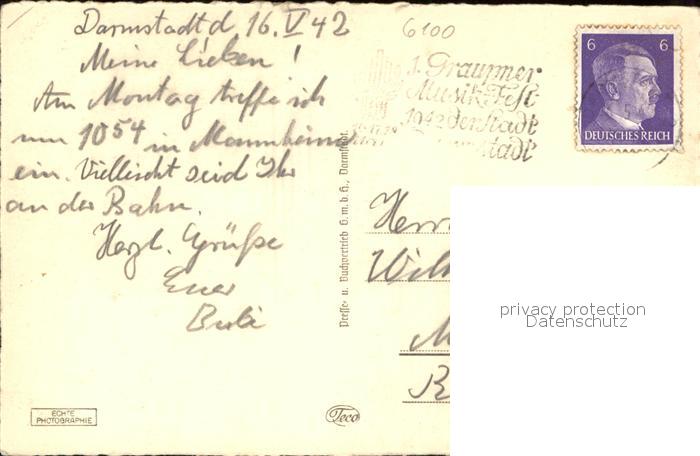 Darmstadt d. 16. V 42
Meine Lieben!
Am Montag treffe ich
um 10 54 in Mannheim
ein. Vielleicht seid Ihr
an der Bahn.
Herzl. Grüße
Euer
6100
1. Graupner
Musik-Fest
1942 der Stadt
6 6
DEUTSCHES REICH
Presse- u. Buchvertrieb G.m.b.H., Darmstadt.
Herrn
Wilh
M
B
privacy protection
Datenschutz
ECHTE
PHOTOGRAPHIE
Teco